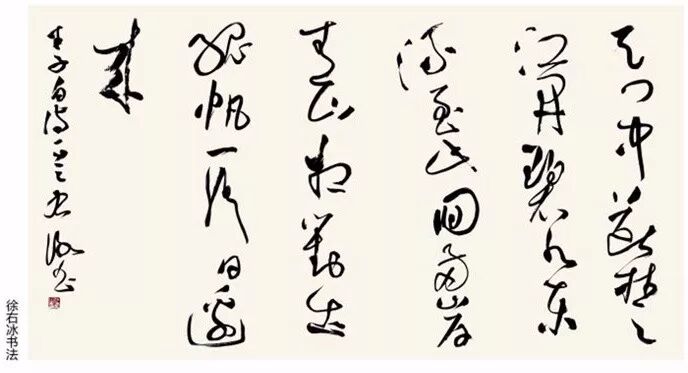 天门中断楚
江开碧水东
流至此回两岸
青山相对出
孤帆一片日边
来
李白诗一首右冰书
徐右冰书法